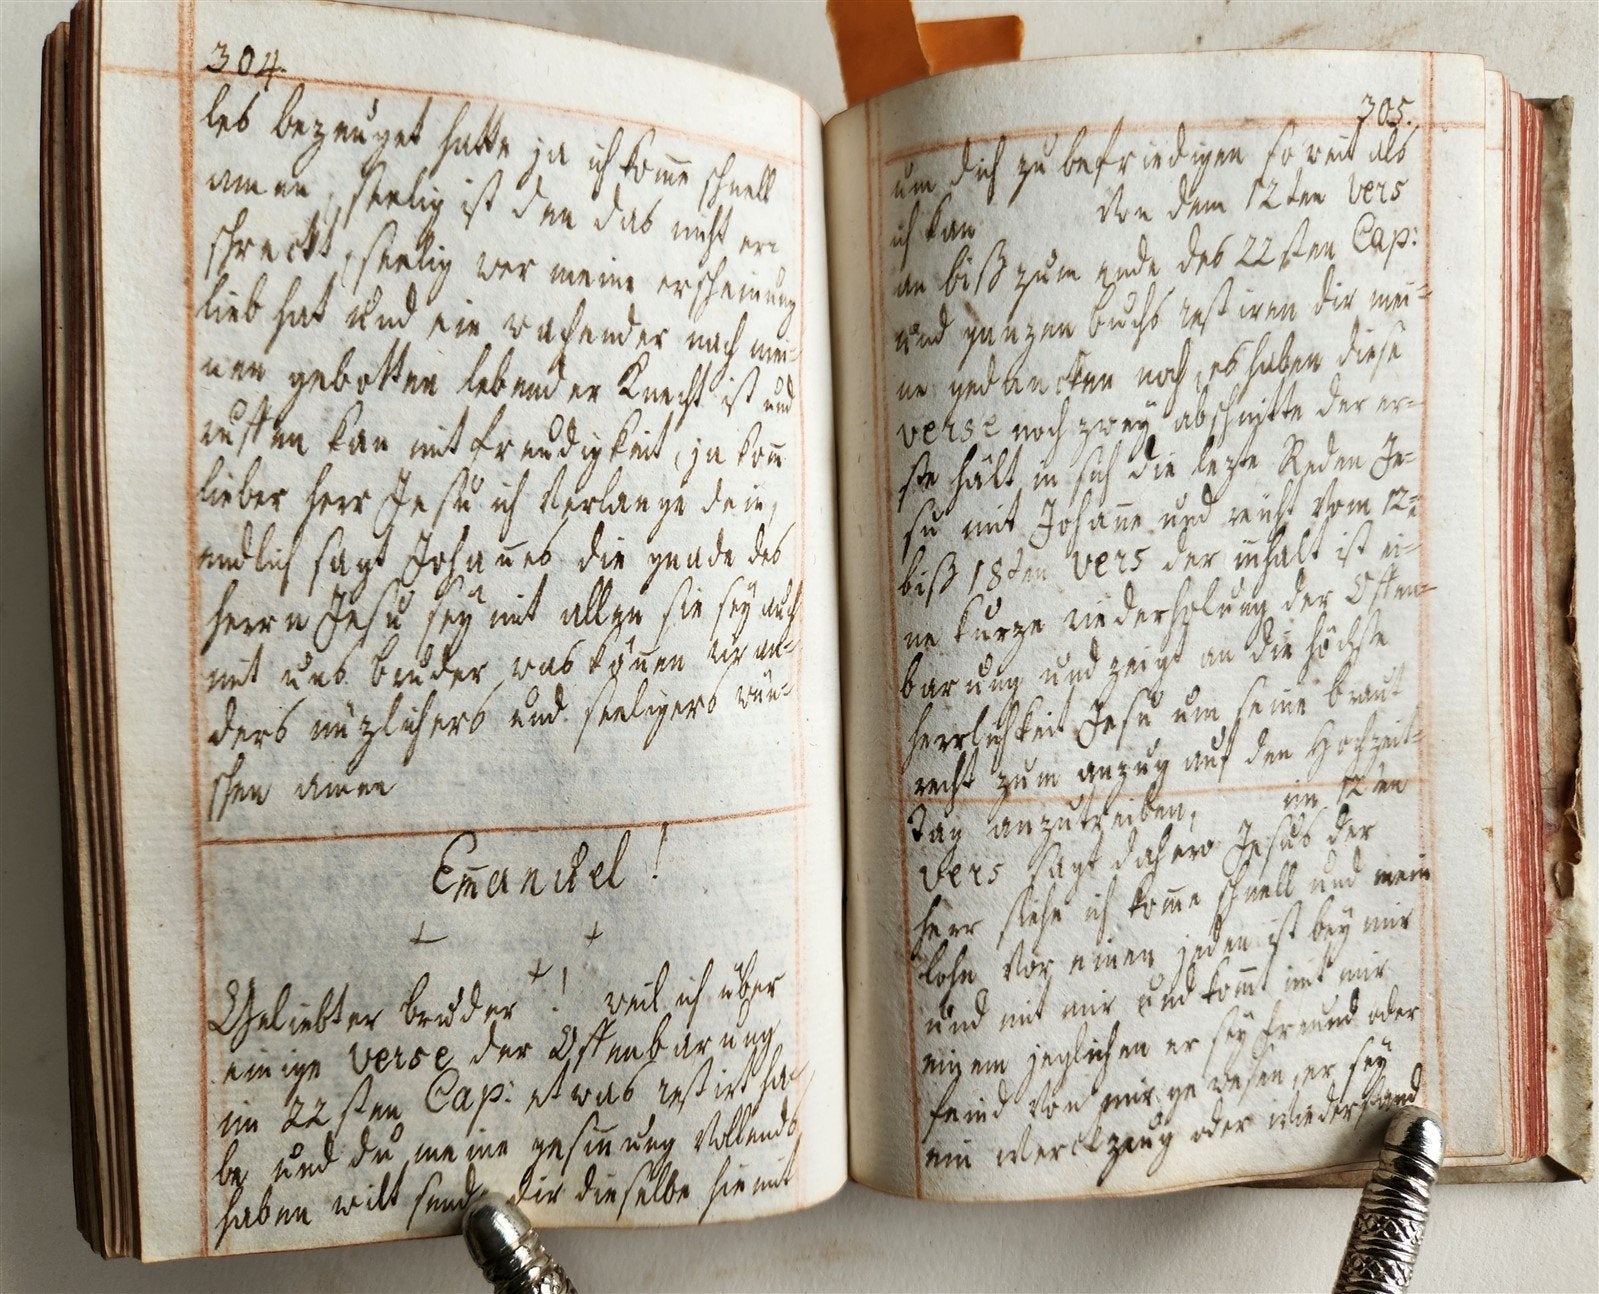 304.
les bezeuget hatte ja ich kom̄e schnell
amen, seelig ist den das nicht er-
schreckt, seelig wer meine erscheinung
lieb hat und ein wachender nach mei-
nen gebotten lebender Knecht ist und
ruffen kan mit freudigkeit, ja kom̄
lieber herr Jesu ich verlange dein,
endlich sagt Johan̄es die gnade des
herrn Jesu seÿ mit allen sie seÿ auch
mit uns bruder was kön̄en wir an-
ders nüzlichers und seeligers wün-
schen amen
Em̄anuel!
Geliebter bruder! weil ich über
einige verse der Offenbarung
im 22sten Cap: etwas restirt ha-
be und du meine gesin̄ung vollends
haben wilt sende dir dieselbe hiemit
305.
um dich zu befriedigen so weit als
ich kan von dem 12ten vers
an biß zum ende des 22sten Cap:
und ganzen buchs restiren dir mei-
ne gedancken noch, es haben diese
verse noch zweÿ abschnitte der er-
ste hält in sich die lezte Reden Je-
su mit Johan̄e und reicht vom 12-
biß 18ten vers der inhalt ist ei-
ne kurze wiederholung der Offen-
barung und zeigt an die höchste
herrlichkeit Jesu um seine braut
recht zum anzug auf den Hochzeit-
Tag anzutreiben, im 12ten
vers sagt dahero Jesus der
herr siehe ich kom̄e schnell und mein
lohn vor einen jeden ist bey mir
und mit mir und kom̄t mit mir
einem jeglichen er sÿ freund oder
feind von mir gewesen, er seÿ
ein Werckzeug oder wiederstand